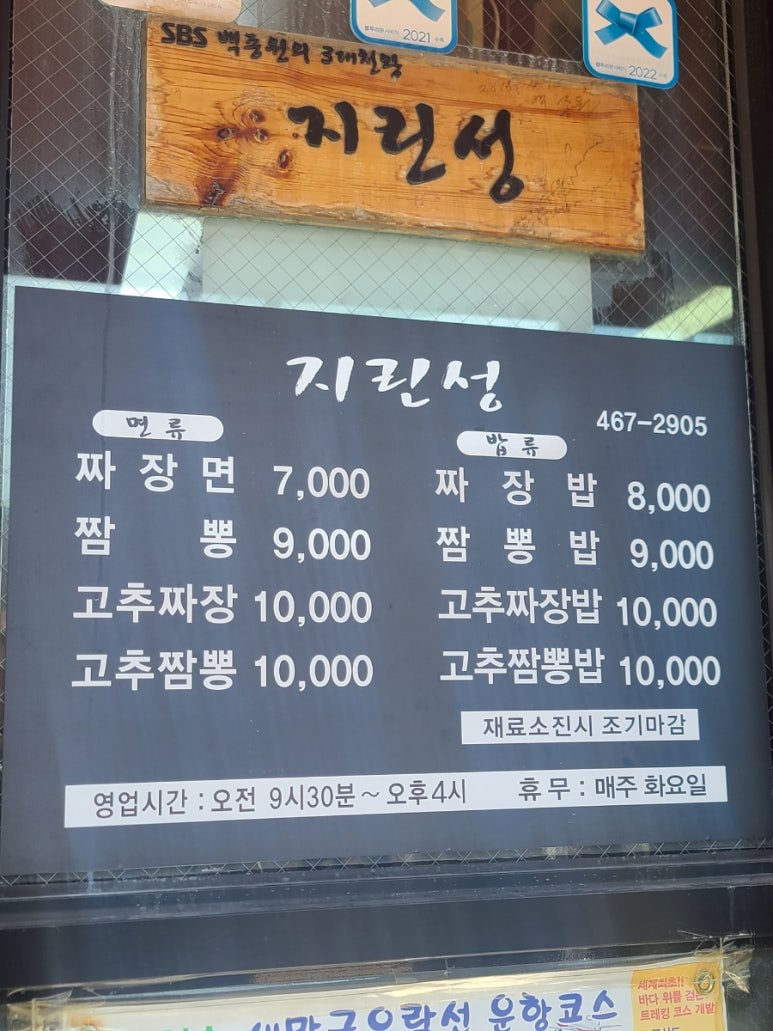 블루리본서베이 2021 수록
블루리본서베이 2022 수록
SBS 백종원의 3대천왕
지린성
지린성
467-2905
면류
짜장면 7,000
짬뽕 9,000
고추짜장 10,000
고추짬뽕 10,000
밥류
짜장밥 8,000
짬뽕밥 9,000
고추짜장밥 10,000
고추짬뽕밥 10,000
재료소진시 조기마감
영업시간 : 오전 9시30분 ~ 오후4시 휴무 : 매주 화요일
세계최초!!
바다 위를 걷는
트레킹 코스 개발
새만금유람선 운항코스